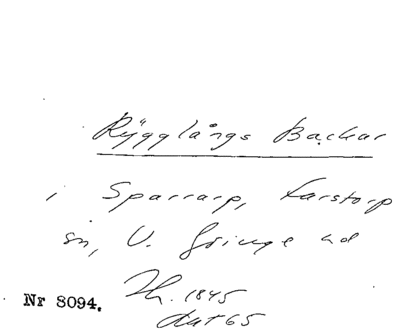 Rygglångs Backar
i Sparrarp, Farstorp
sn, V. Göinge hd
Th. 1845
dat 65
Nr 8094.